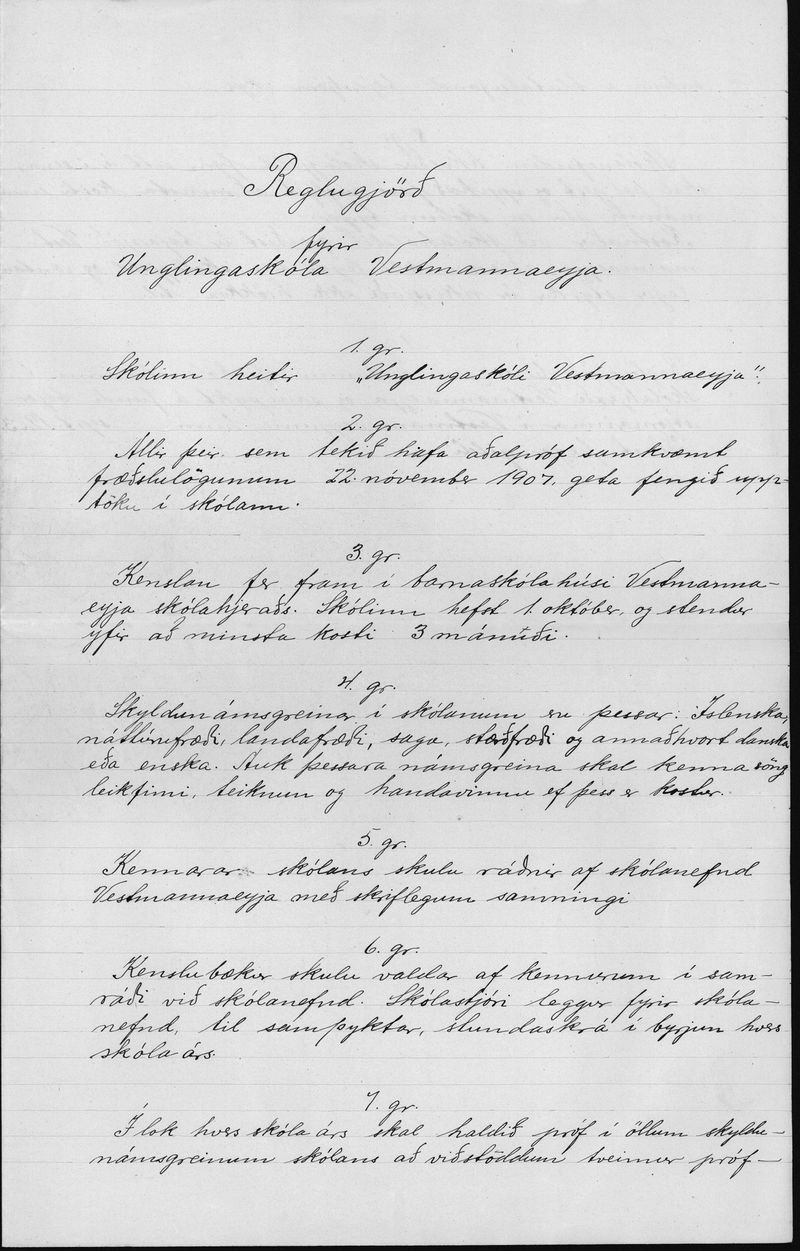 Reglugjörð
fyrir
Unglingaskóla Vestmannaeyja.
1. gr.
Skólinn heitir „Unglingaskóli Vestmannaeyja“.
2. gr.
Allir þeir sem tekið hafa aðalpróf samkvæmt
fræðslulögunum 22. nóvember 1907. geta fengið upp-
töku í skólann.
3. gr.
Kenslan fer fram í barnaskólahúsi Vestmanna-
eyja skólahjeraðs. Skólinn hefst 1. október, og stendur
yfir að minsta kosti 3 mánuði.
4. gr.
Skyldunámsgreinar í skólanum eru þessar: Íslenska,
náttúrufræði, landafræði, saga, stærðfræði og annaðhvort danska
eða enska. Auk þessara námsgreina skal kenna söng
leikfimi, teiknun og handavinnu ef þess er kostur.
5. gr.
Kennarar skólans skulu ráðnir af skólanefnd
Vestmannaeyja með skriflegum samningi
6. gr.
Kenslubækur skulu valdar af kennurum í sam-
ráði við skólanefnd. Skólastjóri leggur fyrir skóla-
nefnd, til samþyktar, stundaskrá í byrjun hvers
skólaárs.
7. gr.
Í lok hvers skólaárs skal haldið próf í öllum skyldu-
námsgreinum skólans að viðstöddum tveimur próf-